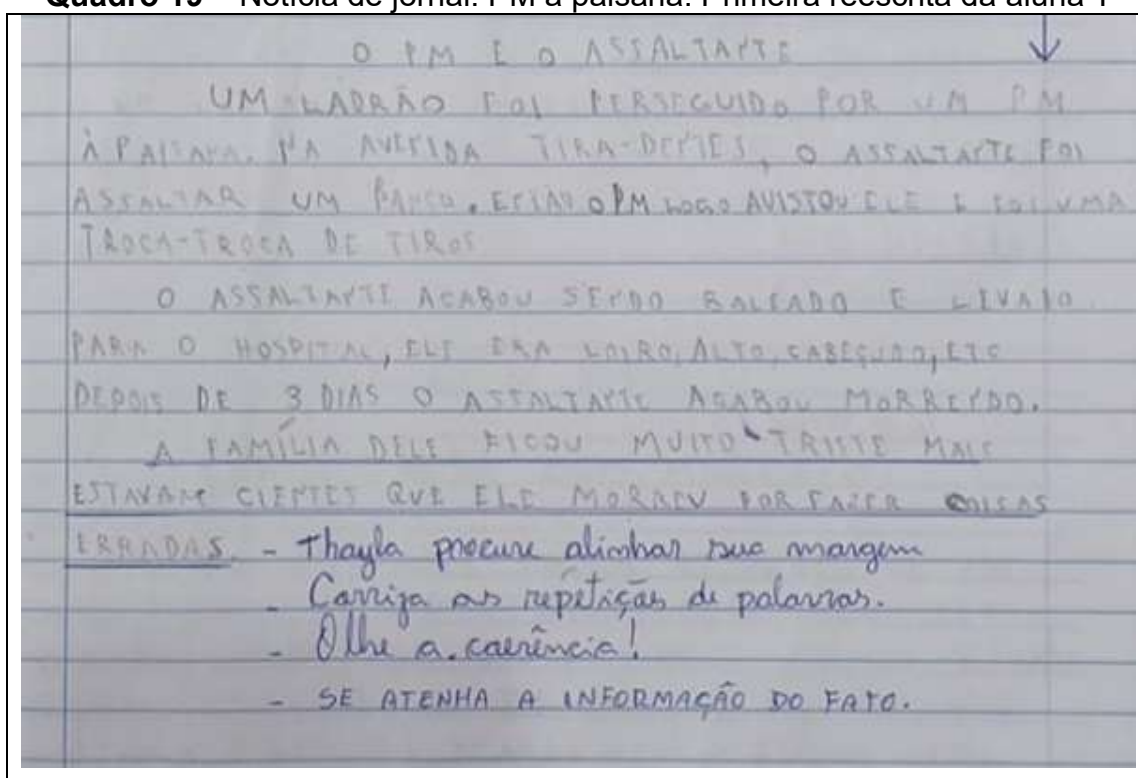 Quadro 19 – Notícia de jornal: PM à paisana. Primeira reescrita da aluna T
O PM E O ASSALTANTE
UM LADRÃO FOI PERSEGUIDO POR UM PM
À PAISANA. NA AVENIDA TIRA-DENTES, O ASSALTANTE FOI
ASSALTAR UM BANCO. O PM LOGO AVISTOU ELE E FOI UMA
TROCA-TROCA DE TIROS
O ASSALTANTE ACABOU SENDO BALEADO E LEVADO
PARA O HOSPITAL, ELE ERA LOIRO, ALTO, CABEÇUDO, ETC
DEPOIS DE 3 DIAS O ASSALTANTE ACABOU MORRENDO.
A FAMÍLIA DELE FICOU MUITO TRISTE MAIS
ESTAVAM CIENTES QUE ELE MORREU POR FAZER COISAS
ERRADAS. - Thayla procure alinhar sua margem
- Corrija as repetições de palavras.
- Olhe a coerência!
- SE ATENHA A INFORMAÇÃO DO FATO.